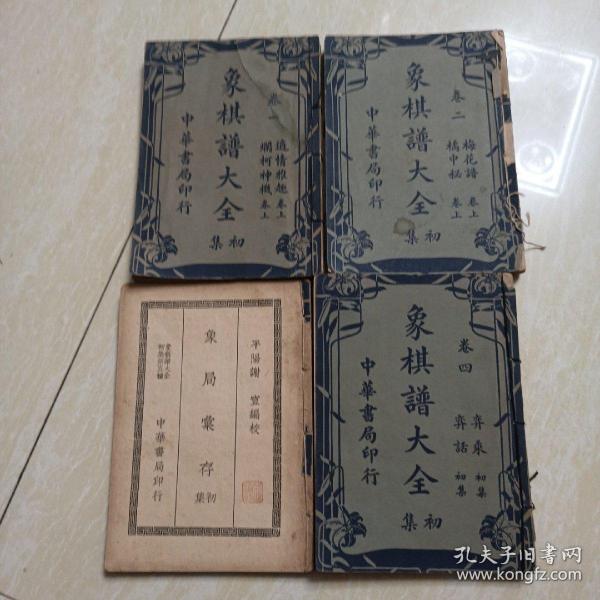 卷一
適情雅趣 卷上
爛柯神機 卷上
象棋譜大全
初集
中華書局印行
卷二
梅花譜 卷上
橘中秘 卷上
象棋譜大全
初集
中華書局印行
平陽謝宣編校
象局彙存
初集
象棋譜大全
初集第五種
中華書局印行
卷四
弈乘 初集
弈話 初集
象棋譜大全
初集
中華書局印行
孔夫子旧书网
www.kongfz.com